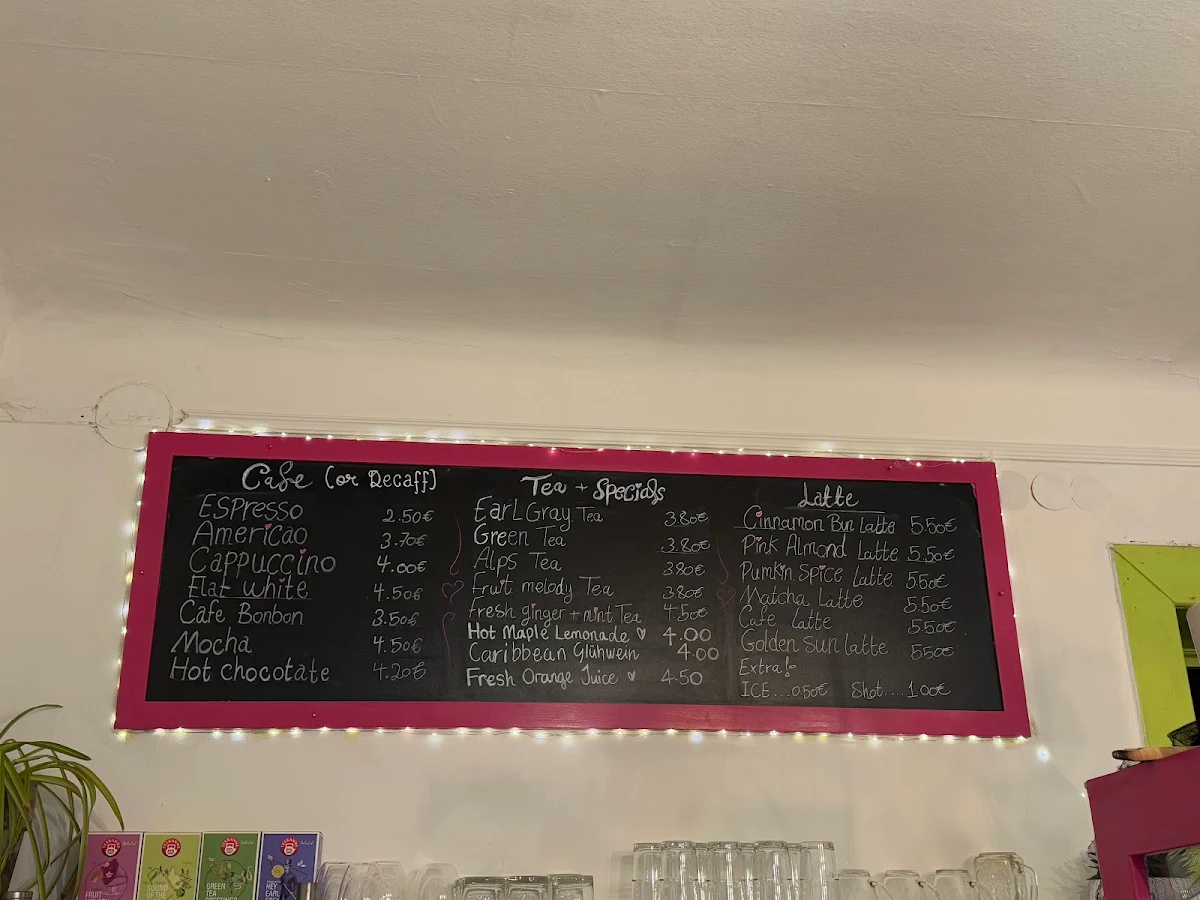 Cafe (or Decaff)
ESPresso 2.50€
Americao 3.70€
Cappuccino 4.00€
Flat white 4.50€
Cafe Bonbon 3.50€
Mocha 4.50€
Hot chocotate 4.20€
Tea + Specials
Earl Gray Tea 3.80€
Green Tea 3.80€
Alps Tea 3.80€
Fruit melody Tea 3.80€
fresh ginger + mint Tea 4.50€
Hot Maple Lemonade 4.00
Caribbean Glühwein 4.00
Fresh Orange Juice 4.50
Latte
Cinnamon Bun Latte 5.50€
Pink Almond Latte 5.50€
Pumkin Spice latte 5.50€
Matcha Latte 5.50€
Cafe latte 5.50€
Golden Sun Latte 5.50€
Extra!
ICE...0.50€ Shot....1.00€
FRUIT
SOUND
OF THE
GREEN
TEA
HEY
EARL